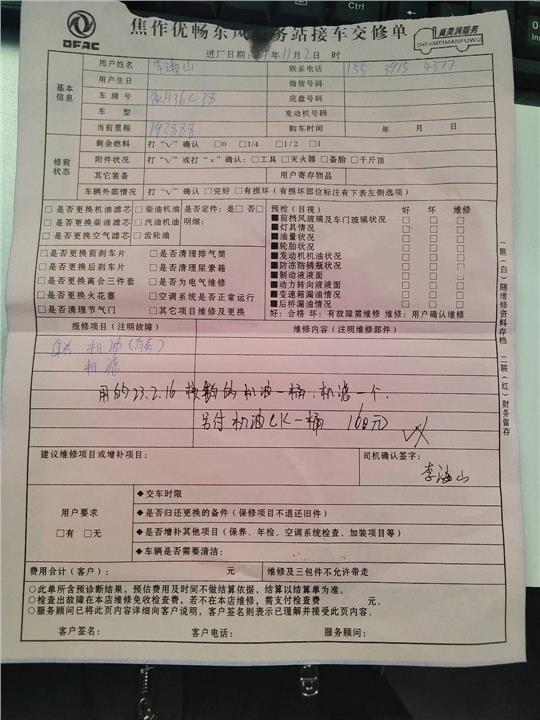 DFAC
焦作优畅东风服务站接车交修单
真美满服务
ZHENMEIMANFUWU
进厂日期: 年11月2日 时
基本信息
用户姓名 李海山 联系电话 155 3915 4377
用户生日 微信号码
车牌号 底盘号码
车型 发动机号码
当前里程 192888 购车时间 年 月 日
修前状态
剩余燃料 打“√”确认 □0 □1/4 □1/2 □1
附件状况 打“√”或打“×”确认:□工具 □灭火器 □备胎 □千斤顶
其它装备 用户寄存物品
车辆外部情况 打“√”确认 □完好 □有损坏(有损坏部位标注有下表左侧选项)
□是否更换机油滤芯 □柴油机油 是否定件:是□ 否□
□是否更换柴油滤芯 □汽油机油 明细:
□是否更换空气滤芯 □齿轮油
□是否更换前刹车片 □是否清理排气筒
□是否更换后刹车片 □是否清理尿素箱
□是否更换离合三件套 □是否为电气维修
□是否更换火花塞 □空调系统是否正常运行
□是否清理节气门 □其它项目维修及更换
预检(目视) 好 坏 维修
■前挡风玻璃及车门玻璃状况 □ □ □
■灯具情况 □ □ □
■油量状况 □ □ □
■轮胎状况 □ □ □
■发动机机油状况 □ □ □
■防冻防锈瓶状况 □ □ □
■制动液液面 □ □ □
■动力转向液液面 □ □ □
■变速箱漏油情况 □ □ □
■后桥漏油情况 □ □ □
好:合格 坏:有故障需维修 维修:用户确认维修
报修项目(注明故障) 维修内容(注明维修部件)
保养 机油
机滤
用的23.2.16 的机油一桶,机滤一个.
另付机油CK一桶 168元
建议维修项目或增补项目: 司机确认签字:
李海山
用户要求
□有 □无
◆交车时限
◆是否归还更换的备件(保修项目不退还旧件)
◆是否增补其他项目(保养、年检、空调系统检查、加装项目等)
◆车辆是否需要清洁:
费用合计(费用): 元 维修及三包件不允许带走
○此单所含预诊断结果,预估费用及时间不做结算依据,结算以结算单为准。
○检查出故障在本店维修免收检查费,若不在本店维修,需支付检查费 元。
○服务顾问已将此页内容详细向客户说明,客户签名则表示已理解并接受此页内容。
客户签名: 客户电话: 服务顾问:
一联(白)随维修资料存档 二联(红)财务留存